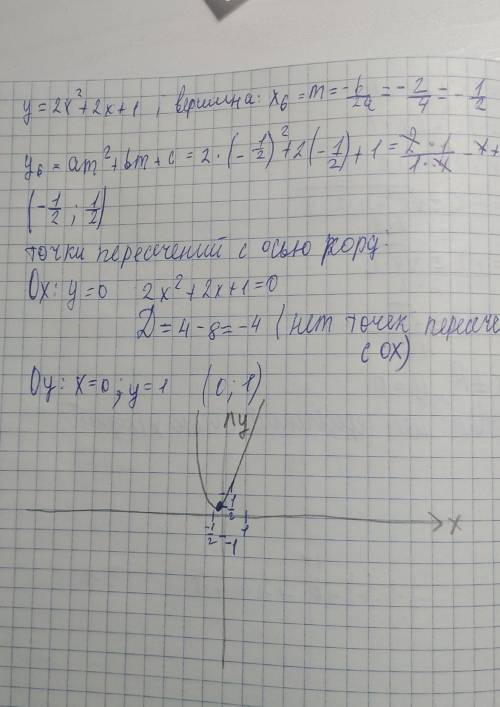 y = 2x² + 2x + 1 ; вершина: x₆ = m = -b/2a = -2/4 = -1/2
y₆ = am² + bm + c = 2·(-1/2)² + 2(-1/2) + 1 = 2·1/1·4 - 1 +
(-1/2 ; 1/2)
точки пересечений с осью коорд:
Ox: y = 0 2x² + 2x + 1 = 0
D = 4 - 8 = -4 (нет точек пересече
с OX)
Oy: x = 0 ; y = 1 (0 ; 1)
y
1/2
x
-1/2
1
-1